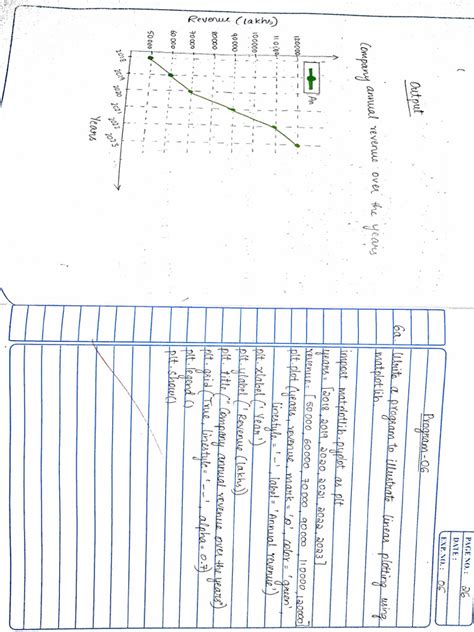 Output
Company annual revenue over the years
An
Revenue (lakhs)
120000
110000
100000
90000
80000
70000
60000
50000
2018
2019
2020
2021
2022
2023
Years
PAGE NO.: 26
DATE:
EXP. NO.: 06
Program-06
6a Write a program to illustrate linear plotting using
matplotlib
import matplotlib.pyplot as plt
years = [2018, 2019, 2020, 2021, 2022, 2023]
revenue = [50000, 60000, 70000, 90000, 110000, 120000]
plt.plot(years, revenue, mark = 'o', color = 'green',
linestyle = '-', label = 'Annual revenue')
plt.xlabel('Year')
plt.ylabel('Revenue (lakhs)')
plt.title('Company annual revenue over the years')
plt.grid(True, linestyle = '--', alpha = 0.7)
plt.legend()
plt.show()